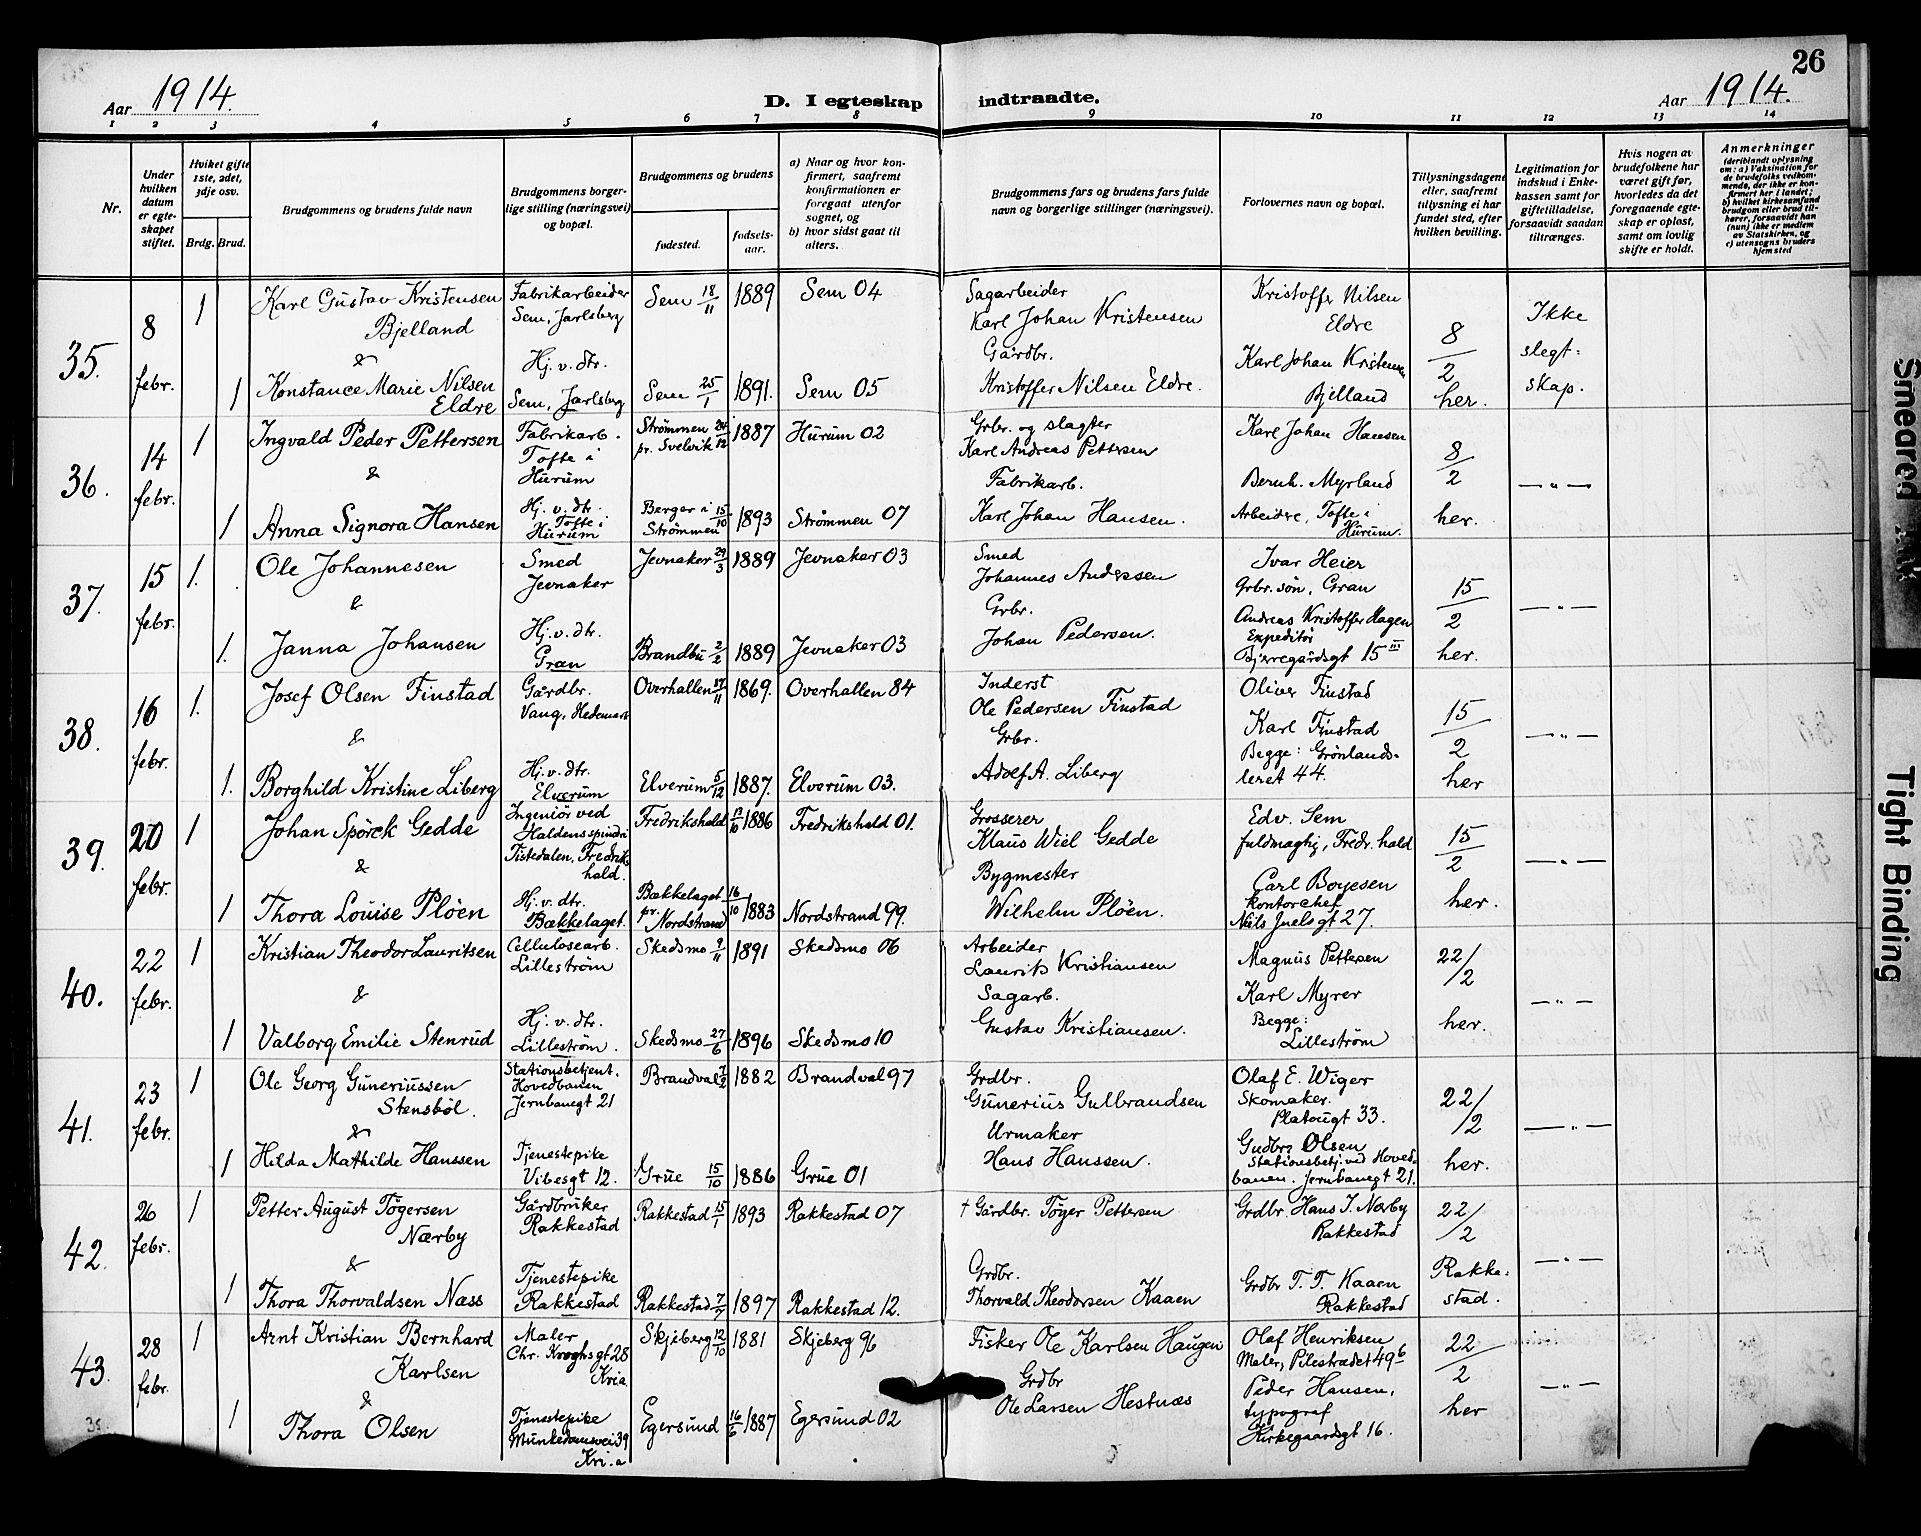 26
Aar 1914. D. I egteskap indtraadte. Aar 1914.
1 2 3 4 5 6 7 8 9 10 11 12 13 14
Nr.
Under hvilken datum er egteskapet stiftet.
Hvilket gifte 1ste, 2det, 3dje osv.
Brdg. Brud.
Brudgommens og brudens fulde navn
Brudgommens borgerlige stilling (næringsvei) og bopæl.
Brudgommens og brudens
fødested. fødselsaar.
a) Naar og hvor konfirmert, saafremt konfirmationen er foregaat utenfor sognet, og
b) hvor sidst gaat til alters.
Brudgommens fars og brudens fars fulde navn og borgerlige stillinger (næringsvei).
Forlovernes navn og bopæl.
Tillysningsdagene eller, saafremt tillysning ei har fundet sted, efter hvilken bevilling.
Legitimation for indskud i Enkekassen samt for giftetilladelse, forsaavidt saadan tiltrænges.
Hvis nogen av brudefolkene har været gift før, hvorledes da det foregaaende egteskap er opløst, samt om lovlig skifte er holdt.
Anmerkninger
(deriblandt oplysning om: a) Vaksination for de brudefolks vedkommende, der ikke er konfirmert her i landet; b) hvilket kirkesamfund brudgom eller brud tilhører, forsaavidt han (hun) ikke er medlem av Statskirken, og c) utensogns bruders hjemsted
35.
8 febr.
1
Karl Gustav Kristensen Bjelland
Fabrikarbeider Sem, Jarlsberg
Sem 18/11 1889
Sem 04
Sagarbeider Karl Johan Kristensen
Kristoffer Nilsen Eldre
8/2 her.
Ikke slegt: skap.
&
1
Konstance Marie Nilsen Eldre
Hj. v. dtr. Sem, Jarlsberg
Sem 25/1 1891.
Sem 05
Gårdbr. Kristoffer Nilsen Eldre.
Karl Johan Kristensen Bjelland
36.
14 febr.
1
Ingvald Peder Pettersen
Fabrikarb. Tofte i Hurum
Strømmen pr. Svelvik 24/12 1887
Hurum 02
Grbr. og slagter Karl Andreas Pettersen
Karl Johan Hansen
8/2 her.
— " —
&
1
Anna Signora Hansen
Hj. v. dtr. Tofte i Hurum
Berger i Strømmen 15/10 1893
Strømmen 07
Fabrikarb. Karl Johan Hansen.
Bernh. Myrland
Arbeidere, Tofte i Hurum.
37.
15 febr.
1.
Ole Johannesen
Smed Jevnaker
Jevnaker 29/3 1889
Jevnaker 03
Smed Johannes Andersen
Ivar Heier Grbr. søn, Gran
15/2 her.
— " —
&
1.
Janna Johansen
Hj. v. dtr. Gran
Brandbu 2/2 1889
Jevnaker 03
Grbr. Johan Pedersen.
Andreas Kristoffer Hagen Expeditör Bjerregårdsgt 15 III
38.
16 febr.
1.
Josef Olsen Finstad
Gårdbr. Vang, Hedemark
Overhallen 17/11 1869.
Overhallen 84
Inderst Ole Pedersen Finstad
Oliver Finstad
15/2 her
— " —
&
1.
Borghild Kristine Liberg
Hj. v. dtr. Elverum
Elverum 5/12 1887.
Elverum 03.
Grbr. Adolf A. Liberg
Karl Finstad Begge: Grönlandsleret 44.
39.
20 febr.
1
Johan Spörck Gedde
Ingeniör ved Haldens spinderi Tistedalen, Fredrikshald.
Fredrikshald 17/10 1886
Fredrikshald 01.
Grosserer Klaus Wiel Gedde
Edv. Sem fuldmægtig, Fredr.hald
15/2 her.
— " —
&
1
Thora Louise Plöen
Hj. v. dtr. Bækkelaget.
Bækkelaget pr. Nordstrand 16/10 1883
Nordstrand 99.
Bygmester Wilhelm Plöen.
Carl Boyesen kontorchef Niels Juels gt 27.
40.
22 febr.
1
Kristian Theodor Lauritsen
Cellulosearb. Lilleström
Skedsmo 9/11 1891
Skedsmo 06
Arbeider Laurits Kristiansen
Magnus Pettersen
22/2 her.
— " —
&
1
Valborg Emilie Stenrud
Hj. v. dtr. Lilleström.
Skedsmo 27/6 1896
Skedsmo 10
Sagarb. Gustav Kristiansen.
Karl Myrer Begge: Lilleström
41.
23 febr.
1
Ole Georg Gunerüssen Stensböl.
Stationsbetjent. Hovedbanen Jernbanegt 21
Brandval 7/2 1882
Brandval 97
Grdbr. Gunerius Gulbrandsen
Olaf E. Wiger Skomaker. Platougt 33.
22/2 her.
— " —
&
1
Hilda Mathilde Hanssen
Tjenestepike Vibesgt 12.
Grue 15/10 1886
Grue 01
Urmaker Hans Hanssen.
Gudbr. Olsen Stationsbetj. ved Hovedbanen. Jernbanegt 21.
42.
26 febr.
1
Petter August Tögersen Nærby
Gårdbruker Rakkestad
Rakkestad 15/1 1893
Rakkestad 07
† Gårdbr. Töger Pettersen
Grdbr. Hans J. Nærby Rakkestad
22/2 Rakke: stad.
— " —
&
1
Thora Thorvaldsen Næss
Tjenestepike Rakkestad
Rakkestad 7/7 1897
Rakkestad 12.
Grdbr. Thorvald Theodorsen Kaaen
Grdbr T. T. Kaaen Rakkestad
43.
28 febr.
1
Arnt Kristian Bernhard Karlsen
Maler Chr. Kroghsgt 28 Kria.
Skjeberg 12/10 1881
Skjeberg 96
Fisker Ole Karlsen Haugen
Olaf Henriksen Maler, Pilestrædet 49 b
22/2 her
— " —
&
1
Thora Olsen
Tjenestepike Munkedamsvei 39 Kri.a
Egersund 16/6 1887
Egersund 02
Grdbr Ole Larsen Hestnæs
Peder Hansen, typograf Kirkegaardsgt 16.
Smeared Ink
Tight Binding